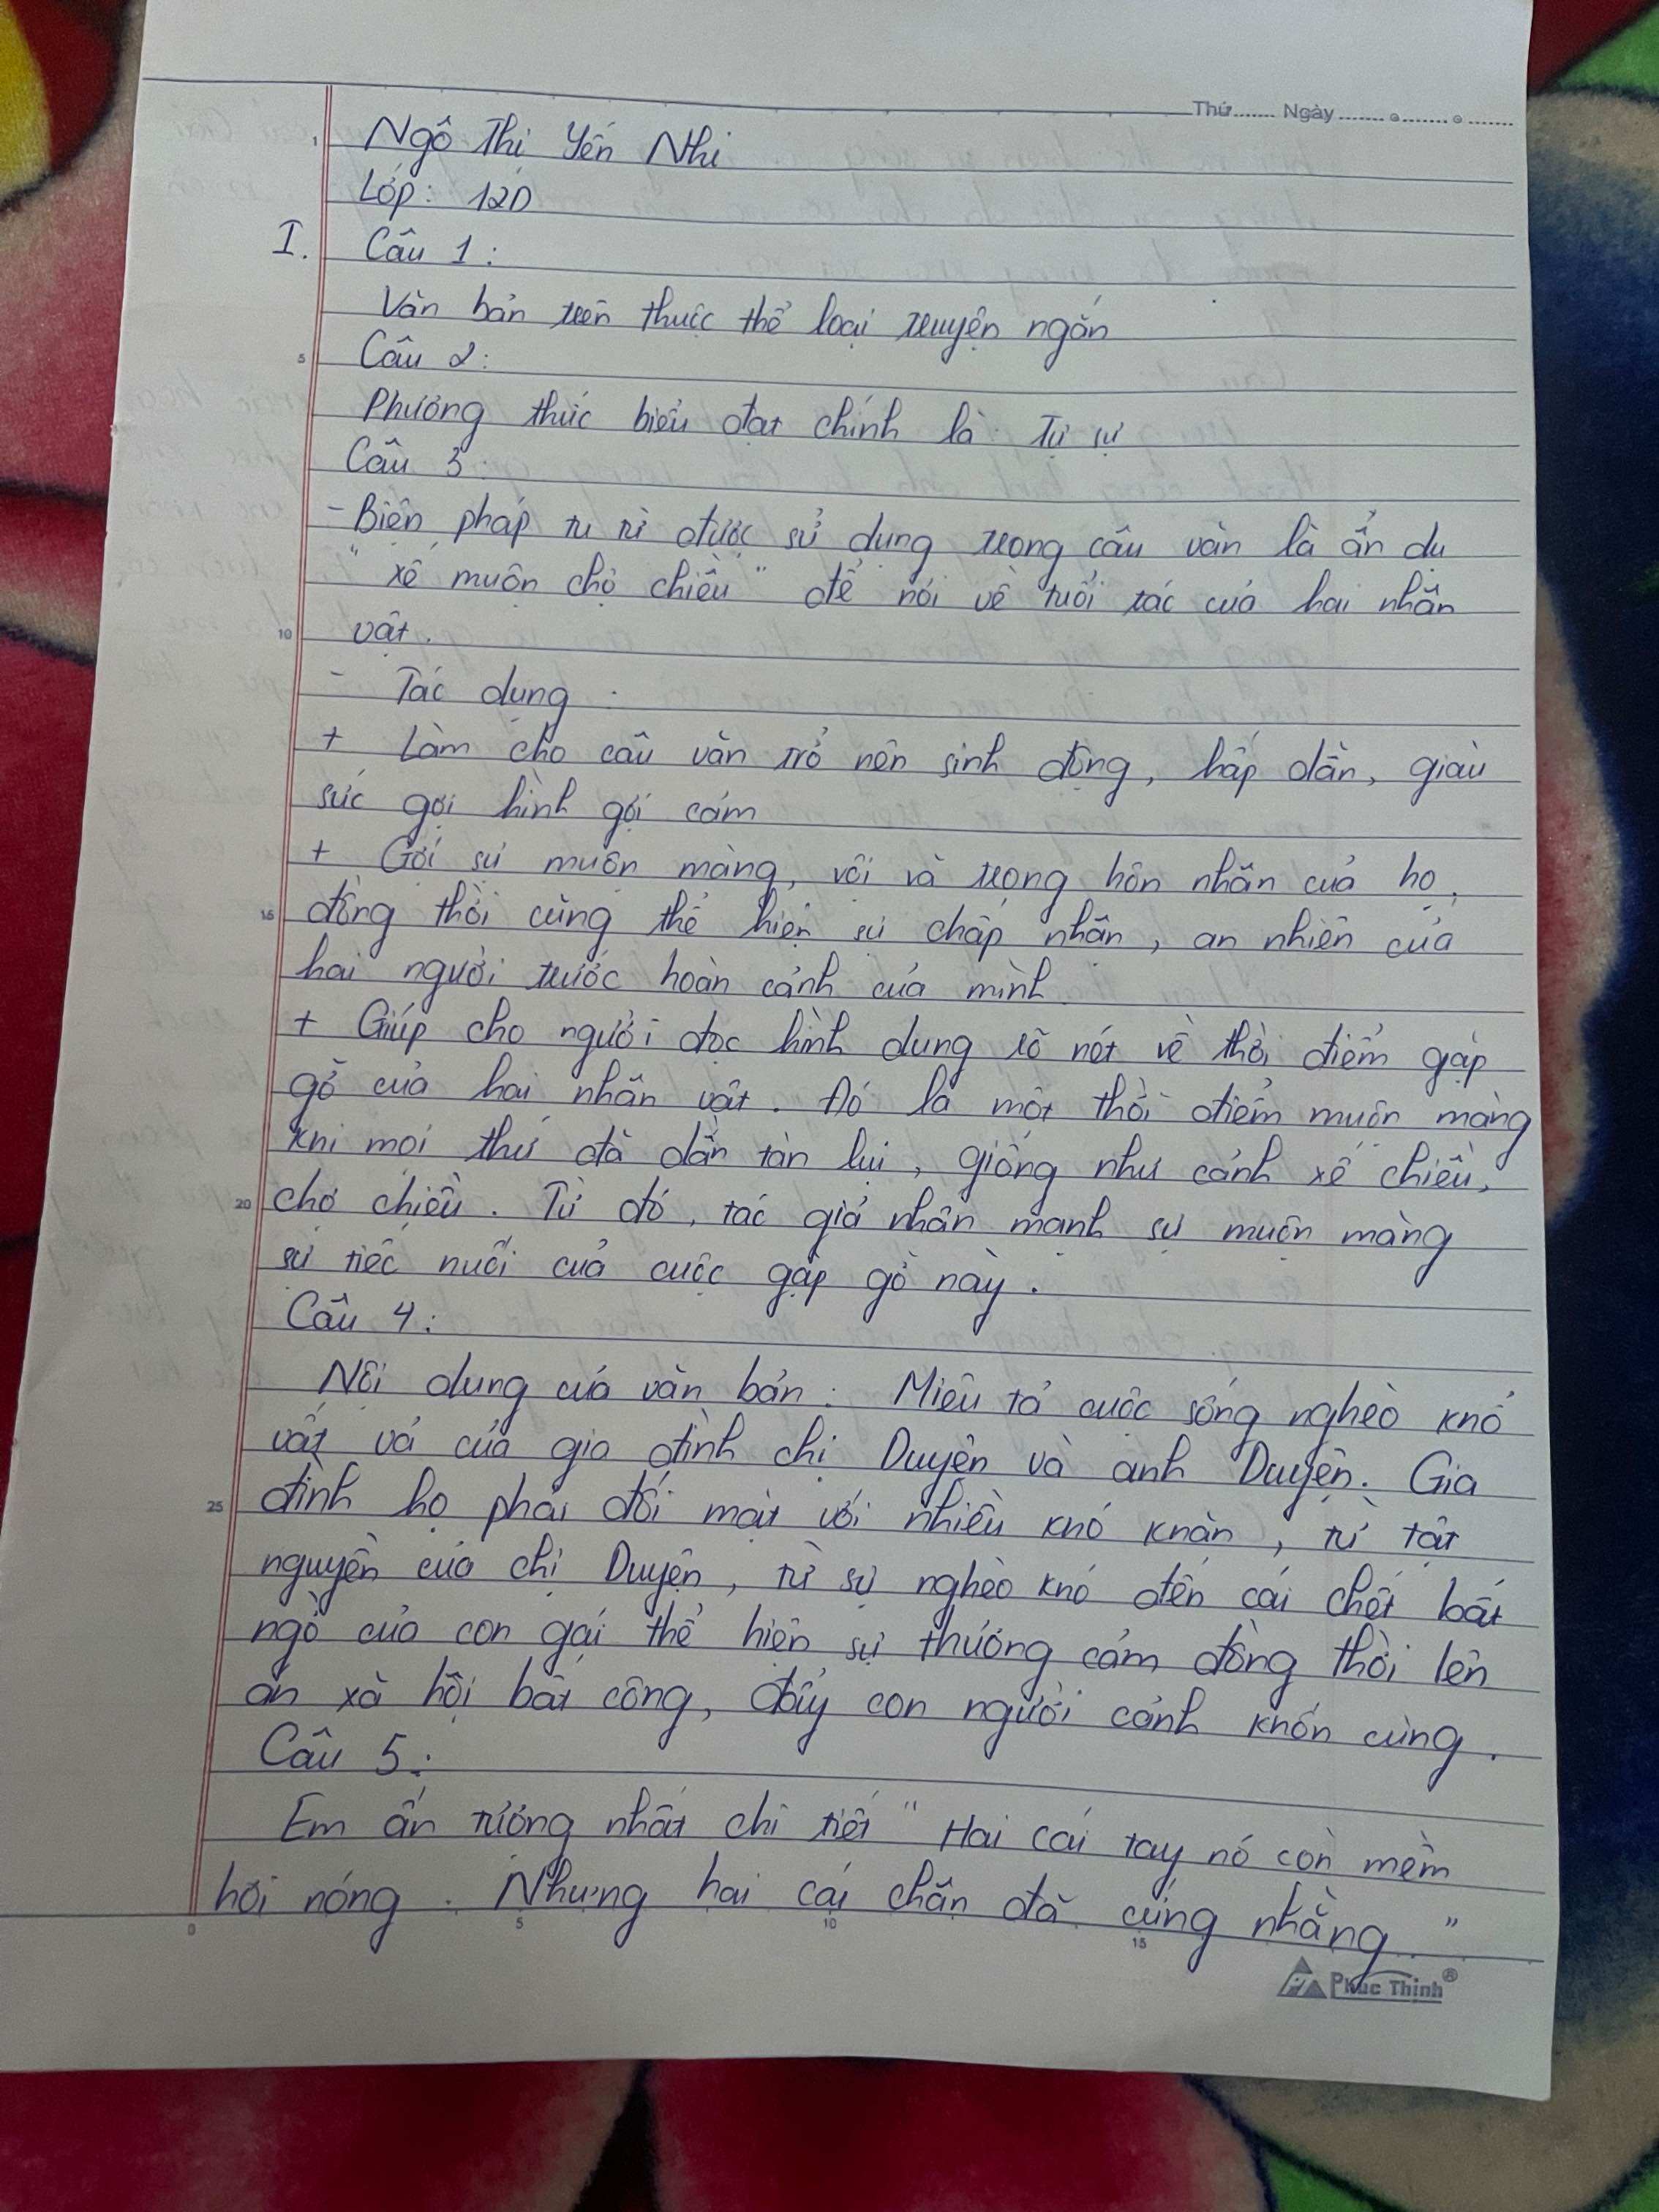 Thứ....... Ngày ....................
1 Ngô Thị Yến Nhi
Lớp: 12D
I. Câu 1:
Văn bản trên thuộc thể loại truyện ngắn
5 Câu 2:
Phương thức biểu đạt chính là: Tự sự
Câu 3:
- Biện pháp tu từ được sử dụng trong câu văn là ẩn dụ
" xế muộn chợ chiều " để nói về tuổi tác của hai nhân
10 vật.
- Tác dụng:
+ Làm cho câu văn trở nên sinh động, hấp dẫn, giàu
sức gợi hình gợi cảm
+ Gợi sự muộn màng, vội vã trong hôn nhân của họ,
15 đồng thời cũng thể hiện sự chấp nhận, an nhiên của
hai người trước hoàn cảnh của mình
+ Giúp cho người đọc hình dung rõ nét về thời điểm gặp
gỡ của hai nhân vật. Đó là một thời điểm muộn màng
khi mọi thứ đã dần tàn lụi, giống như cảnh xế chiều,
20 chợ chiều. Từ đó, tác giả nhấn mạnh sự muộn màng
sự tiếc nuối của cuộc gặp gỡ này.
Câu 4:
Nội dung của văn bản: Miêu tả cuộc sống nghèo khó
vất vả của gia đình chị Duyện và anh Duyện. Gia
25 đình họ phải đối mặt với nhiều khó khăn, từ tật
nguyền của chị Duyện, từ sự nghèo khó đến cái chết bất
ngờ của con gái thể hiện sự thương cảm đồng thời lên
án xã hội bất công, đẩy con người cảnh khốn cùng.
Câu 5:
Em ấn tượng nhất chi tiết " Hai cái tay nó còn mềm
hơi nóng. Nhưng hai cái chân đã cứng nhẳng.. "
0 5 10 15
Phúc Thịnh®